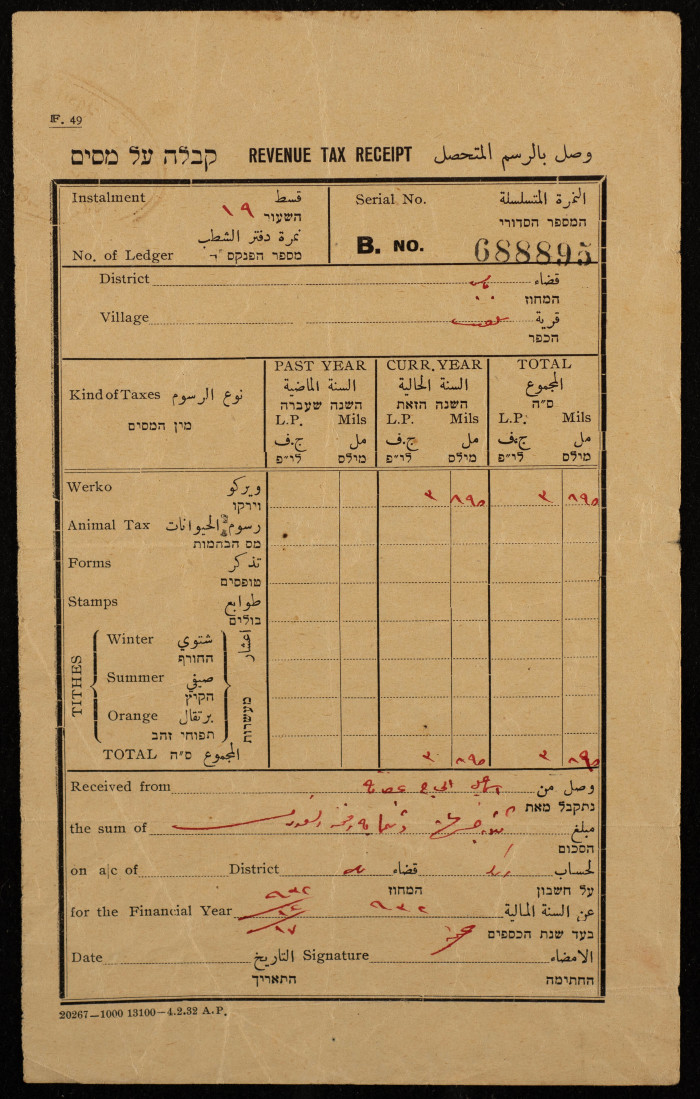 F. 49
קבלה על מסים REVENUE TAX RECEIPT وصل بالرسم المتحصل
Instalment قسط ١٩
השעור
No. of Ledger نمرة دفتر الشطب
מספר הפנקס
Serial No. النمرة المتسلسلة
המספר הסדורי
B. NO. 688895
District قضاء
המחוז
Village قرية
הכפר
Kind of Taxes نوع الرسوم
מין המסים
PAST YEAR CURR. YEAR TOTAL
السنة الماضية السنة الحالية المجموع
השנה שעברה השנה הזאת ס"ה
L.P. Mils L.P. Mils L.P. Mils
ج.ف مل ج.ف مل ج.ف مل
לי"פ מילס לי"פ מילס לי"פ מילס
Werko ويركو ٣ ٨٩٥ ٣ ٨٩٥
וירקו
Animal Tax رسوم الحيوانات
מס הבהמות
Forms تذكر
טופסים
Stamps طوابع
בולים
TITHES اعشار מעשרות
Winter شتوي
החורף
Summer صيفي
הקיץ
Orange برتقال
תפוחי זהב
TOTAL ס"ה المجموع ٣ ٨٩٥ ٣ ٨٩٥
Received from وصل من
נתקבל מאת
the sum of مبلغ
הסכום
on a/c of District قضاء لحساب
המחוז על חשבון
for the Financial Year ٩٣٢ عن السنة المالية
בעד שנת הכספים
Date التاريخ Signature الامضاء
התאריך החתימה
20267—1000 13100—4.2.32 A.P.